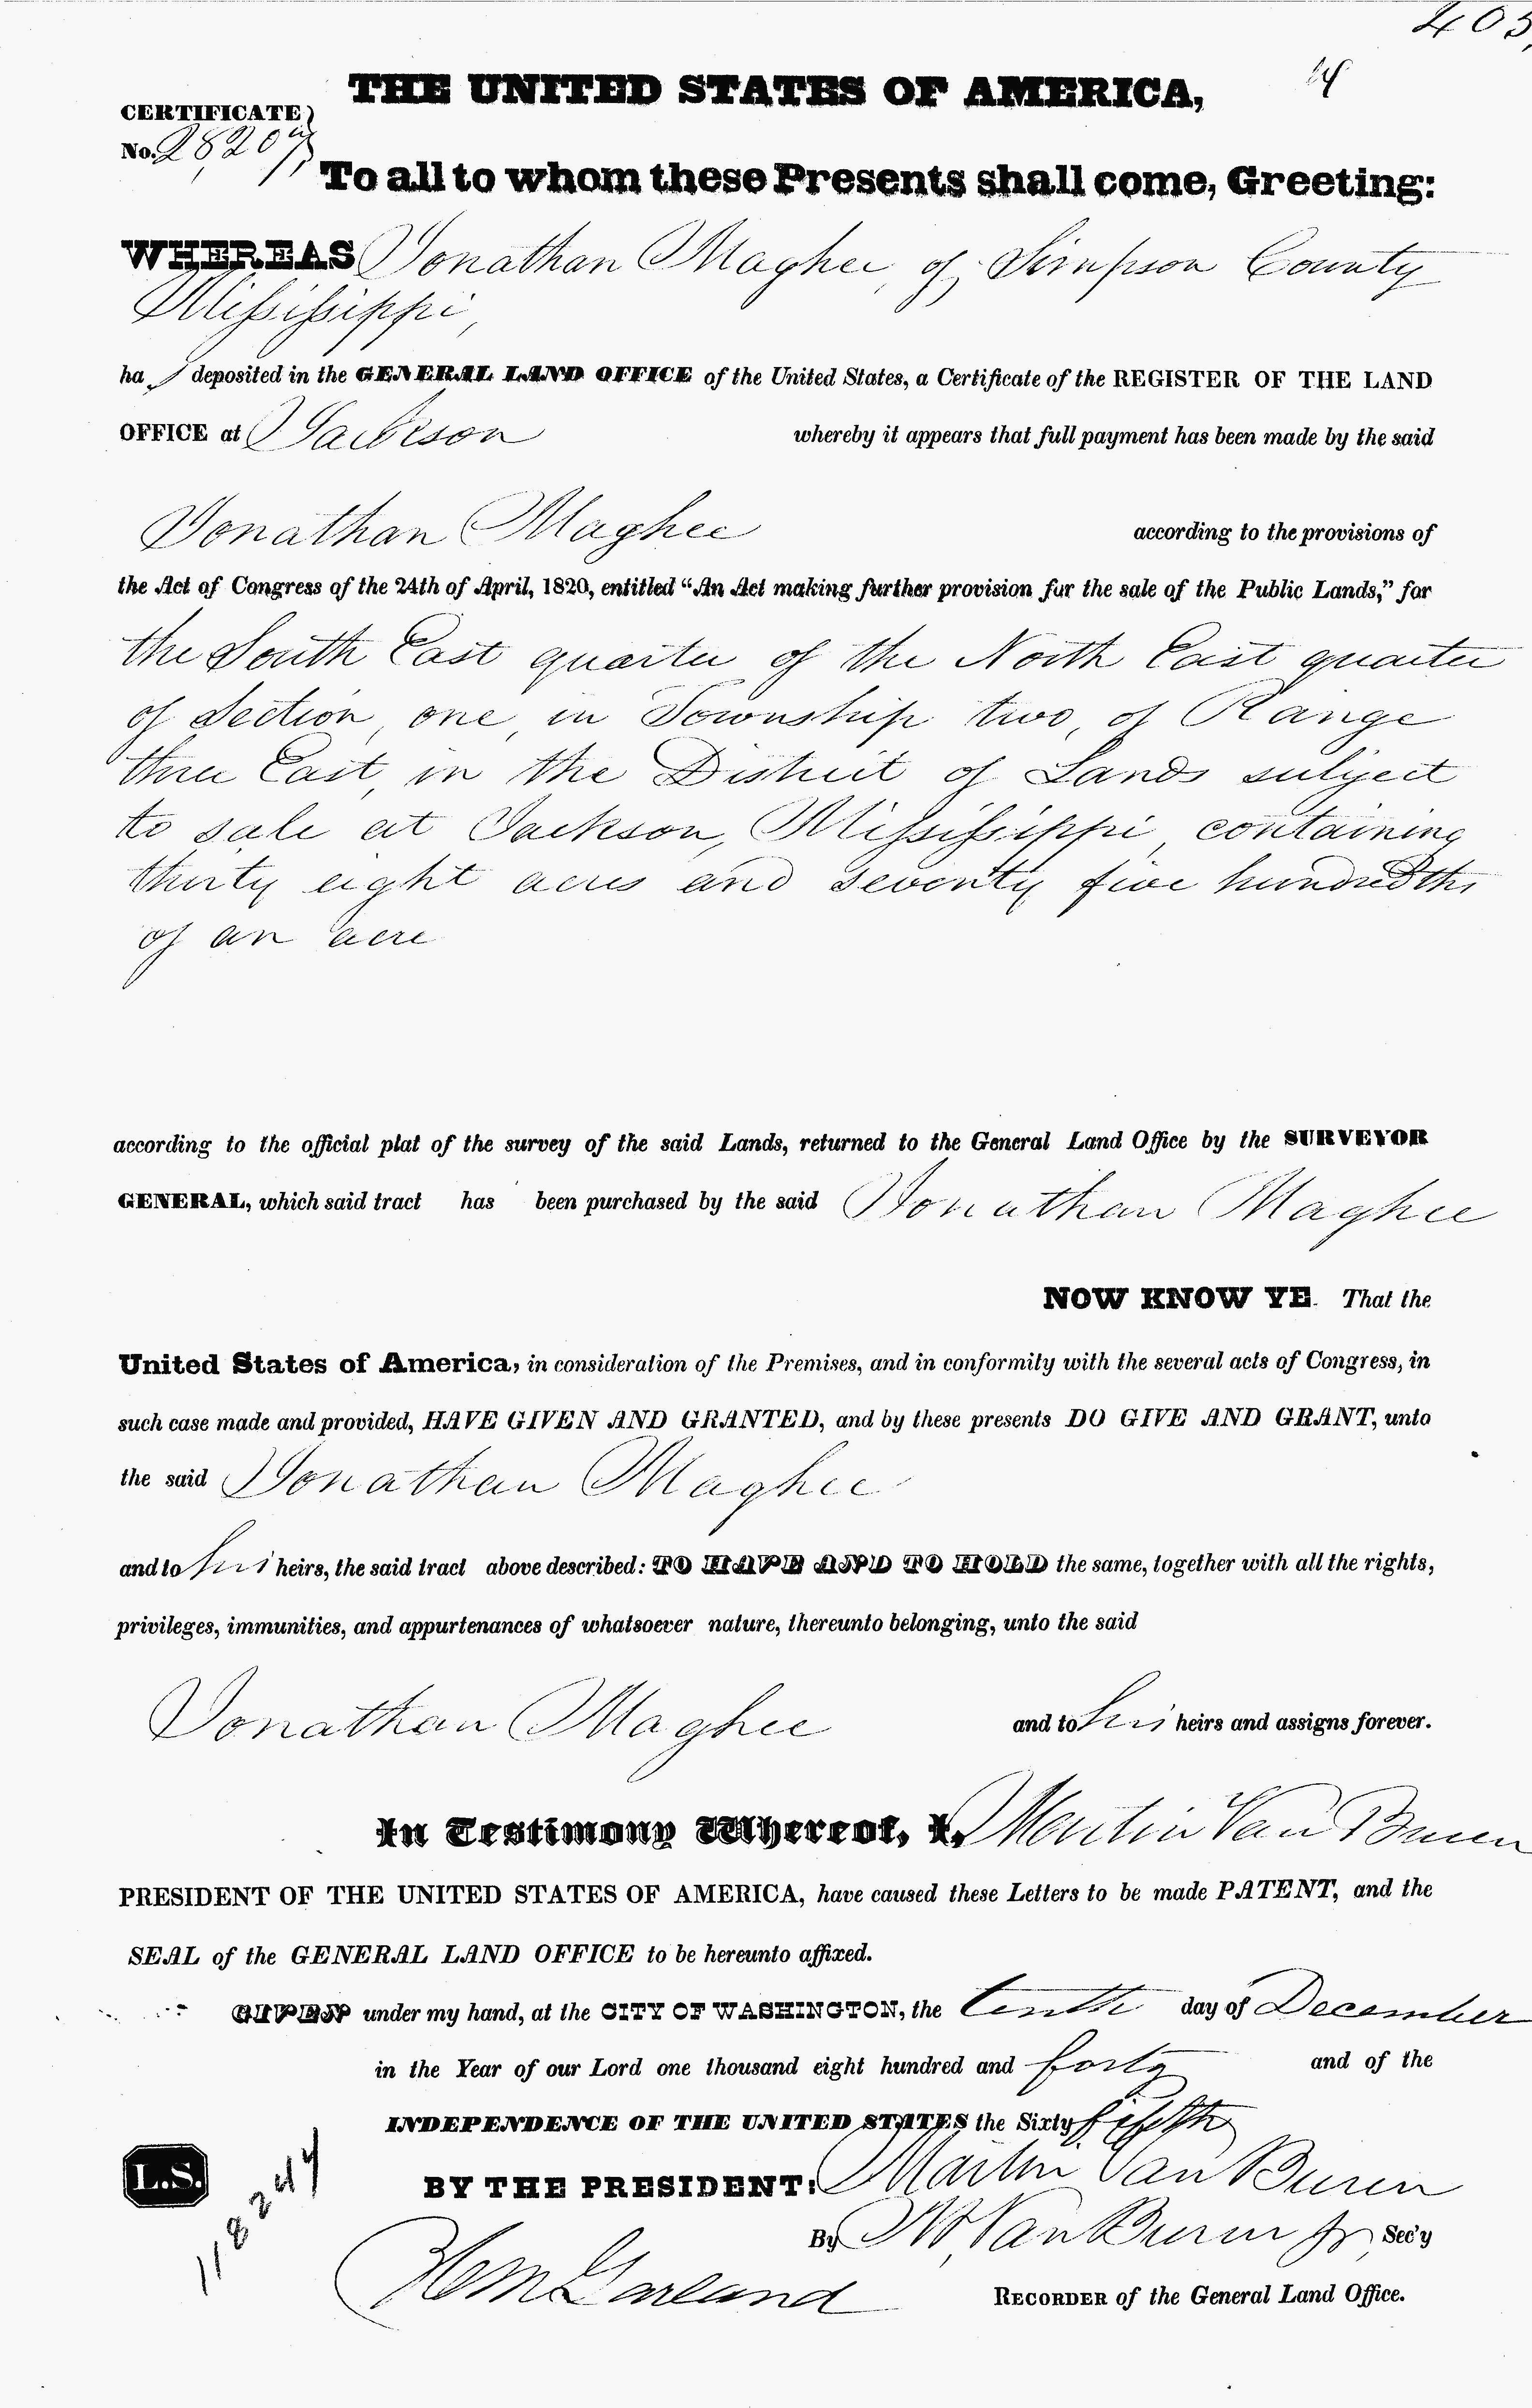 403,
THE UNITED STATES OF AMERICA,
CERTIFICATE
No. 28,207
To all to whom these Presents shall come, Greeting:
WHEREAS Jonathan Maghee, of Simpson County
Mississippi,
ha s deposited in the GENERAL LAND OFFICE of the United States, a Certificate of the REGISTER OF THE LAND
OFFICE at Jackson whereby it appears that full payment has been made by the said
Jonathan Maghee according to the provisions of
the Act of Congress of the 24th of April, 1820, entitled “An Act making further provision for the sale of the Public Lands,” for
the South East quarter of the North East quarter
of Section, one, in Township two, of Range
three East, in the District of Lands subject
to sale at Jackson, Mississippi, containing
thirty eight acres and seventy five hundredths
of an acre
according to the official plat of the survey of the said Lands, returned to the General Land Office by the SURVEYOR
GENERAL, which said tract has been purchased by the said Jonathan Maghee
NOW KNOW YE. That the
United States of America, in consideration of the Premises, and in conformity with the several acts of Congress, in
such case made and provided, HAVE GIVEN AND GRANTED, and by these presents DO GIVE AND GRANT, unto
the said Jonathan Maghee
and to his heirs, the said tract above described: TO HAVE AND TO HOLD the same, together with all the rights,
privileges, immunities, and appurtenances of whatsoever nature, thereunto belonging, unto the said
Jonathan Maghee and to his heirs and assigns forever.
In Testimony Whereof, I, Martin Van Buren
PRESIDENT OF THE UNITED STATES OF AMERICA, have caused these Letters to be made PATENT, and the
SEAL of the GENERAL LAND OFFICE to be hereunto affixed.
GIVEN under my hand, at the CITY OF WASHINGTON, the tenth day of December
in the Year of our Lord one thousand eight hundred and forty and of the
INDEPENDENCE OF THE UNITED STATES the Sixty fifth
L.S.
118244
BY THE PRESIDENT: Martin Van Buren
By M. Van Buren Jr. Sec'y
H M Garland RECORDER of the General Land Office.